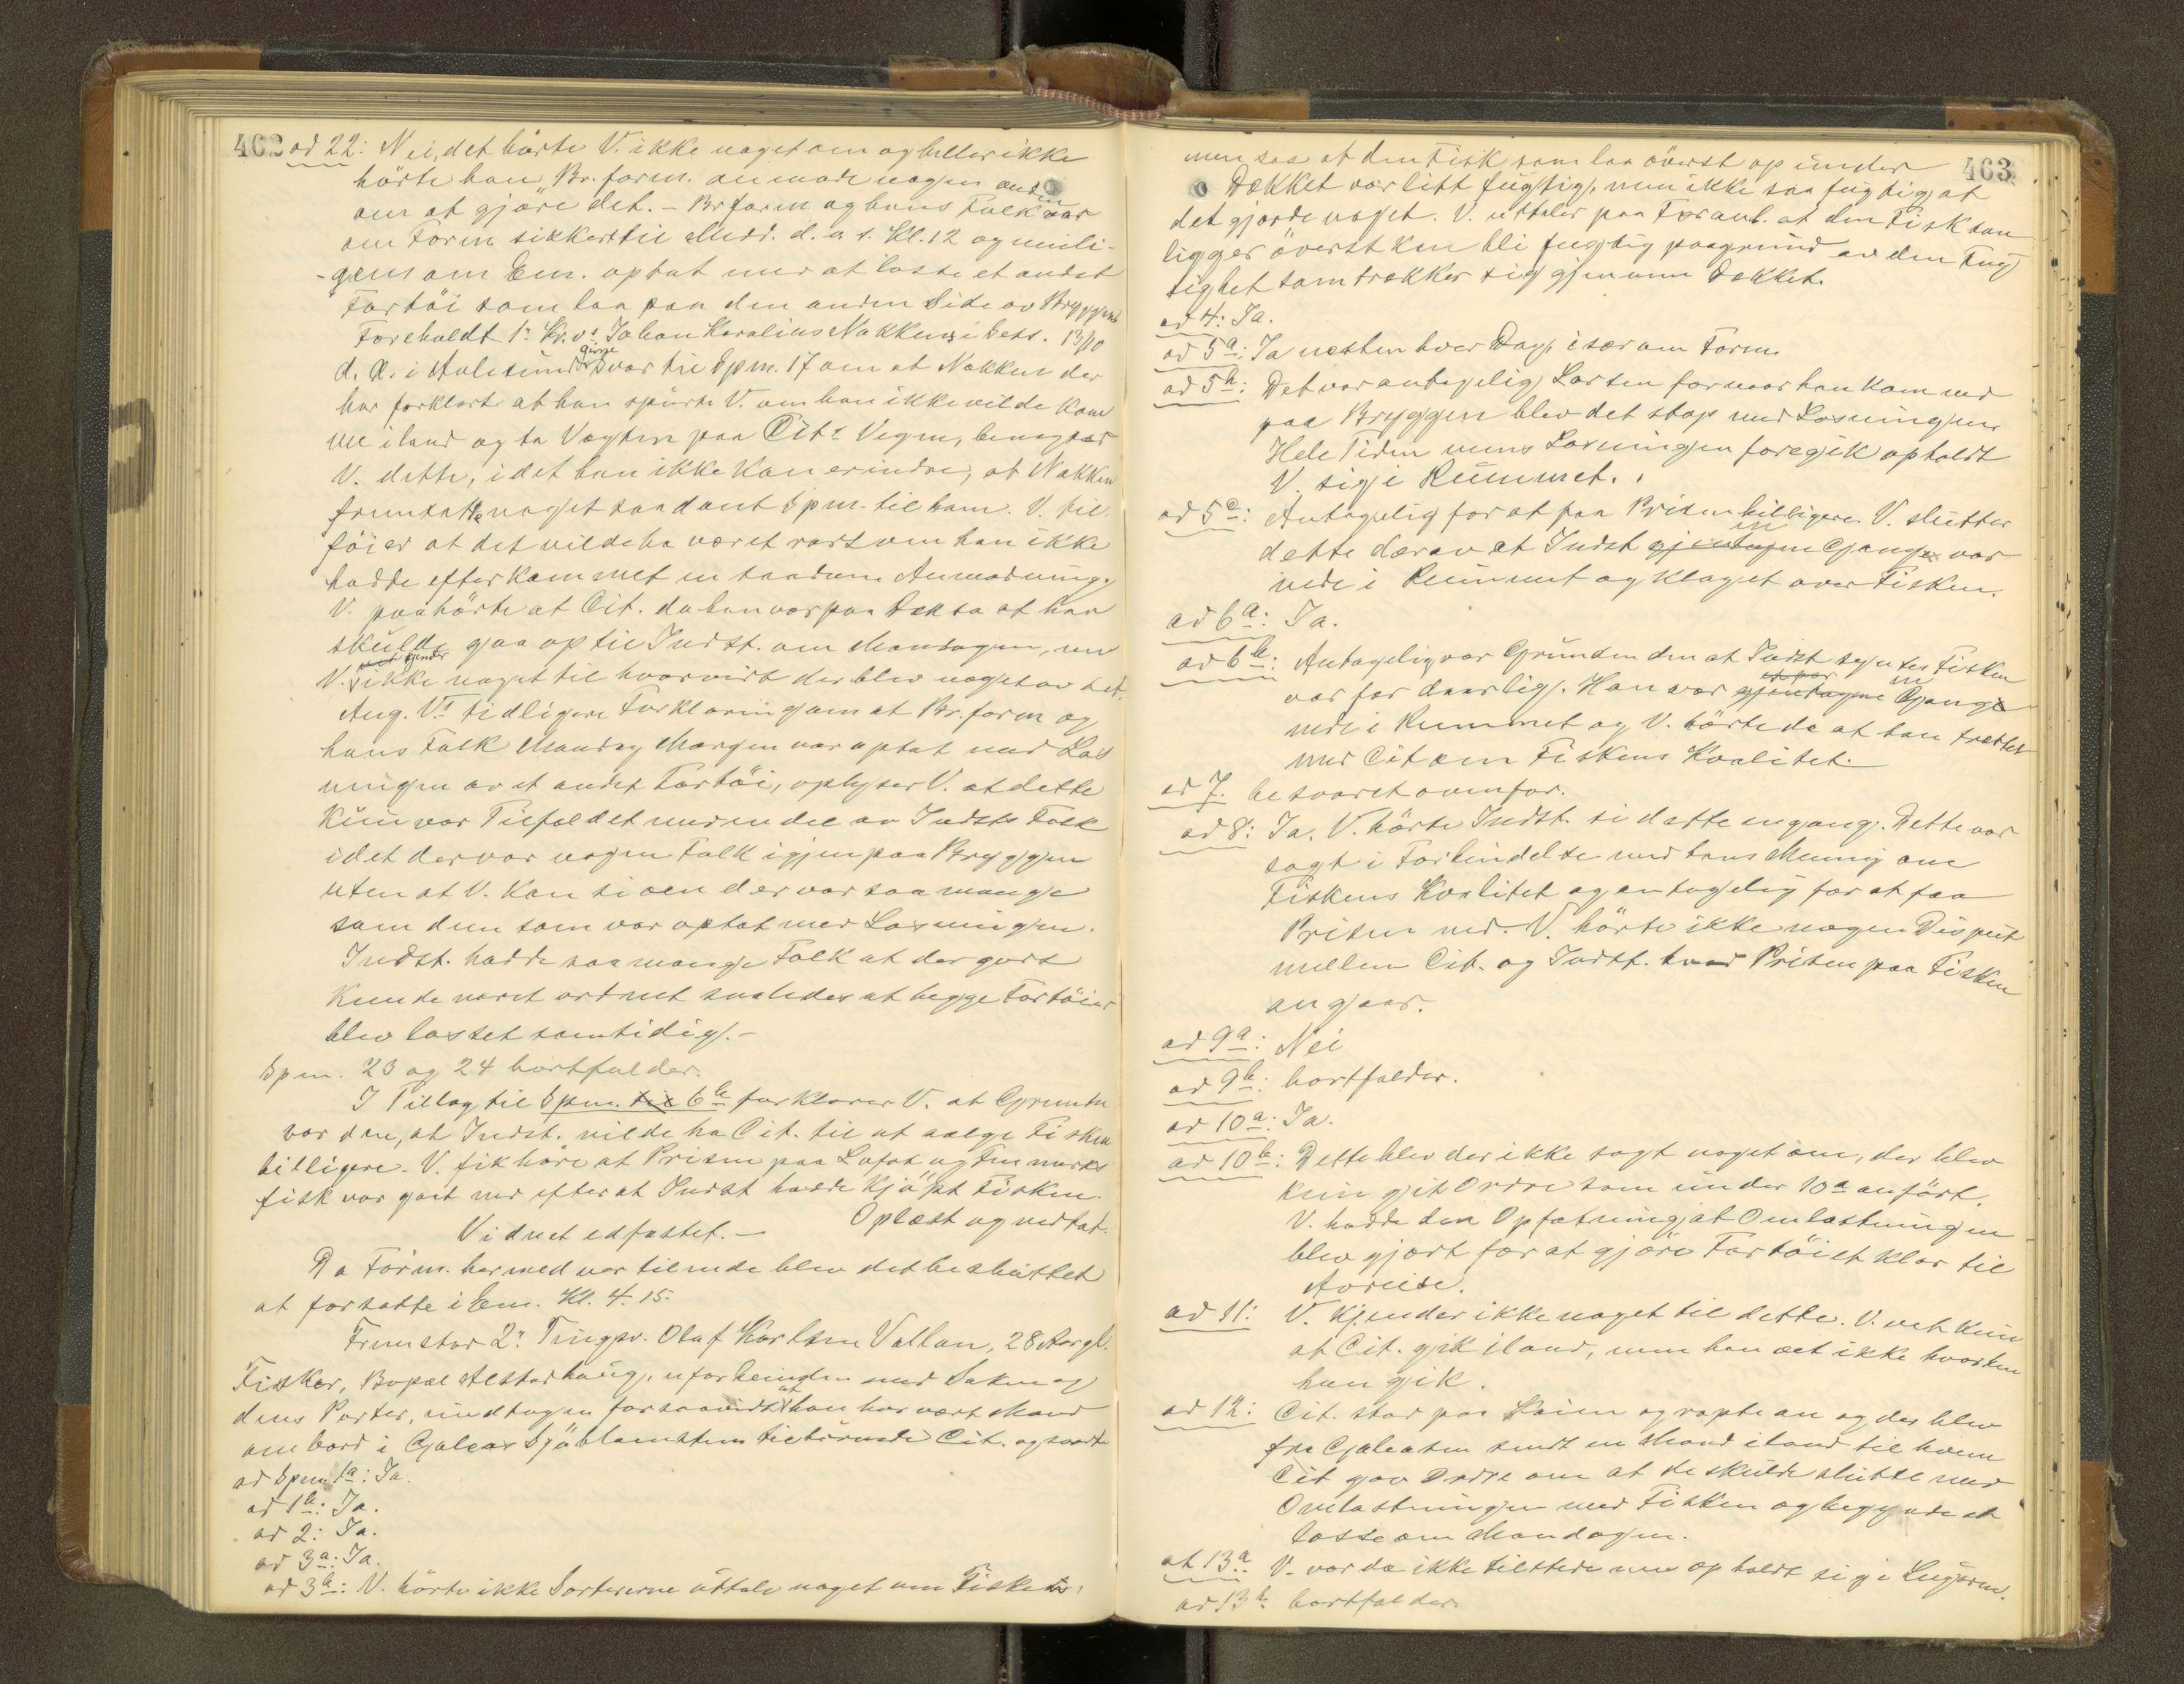 462
ad 22: Nei, det hørte V. ikke noget om og heller ikke
hørte han Br. form. anmode nogen anden
om at gjøre det. – Br form og hans Folk var
om Form. sikkert til Midd. d. v. s. Kl. 12 og muli-
-gens om Em. optat med at losse et andet
Fartöi som laa paa den anden Side av Bryggen.
Foreholdt 1ste Kv. Johan Karolius Nakkens i Sess. 13/10
d. A. i Aalesund givne Svar til Spm. 17 om at Nakken der
har forklart at han spurte V. om han ikke vilde kom
me iland og ta Vægten paa Cits Vegne, benegter
V. dette, idet han ikke kan erindre, at Nakken
fremsatte noget saadant Spm. til ham. V. til
föier at det vilde ha været rart om han ikke
hadde efterkommet en saadan Anmodning.
V. paahörte at Cit. da han var paa Dæk sa at han
skulde gjaa op til Indst. om Mandagen, men
V. kjender ikke noget til hvorvidt der blev noget av det.
Ang. V's tidligere Forklaring om at Br. form og
hans Folk Mandag Morgen var optat med Los
ningen av et andet Fartöi, oplyser V. at dette
kun var Tilfældet med en del av Indsts Folk
idet der var nogen Folk igjen paa Bryggen
uten at V. kan si om der var saa mange
som dem som var optat med Losningen.
Indst. hadde saa mange Folk at der godt
kunde været ordnet saaledes at begge Fartöier
blev losset samtidig. –
Spm. 23 og 24 bortfalder.
I Tillæg til Spm. 6b forklarer V. at Grunden
var den, at Indst. vilde ha Cit. til at sælge Fisken
billigere. V. fik höre at Prisen paa Lofot og Finmarks
fisk var gaat ned efter at Indst hadde kjöpt Fisken.
Vidnet edfæstet. – Oplæst og vedtat.
Da Form. hermed var tilende blev det besluttet
at fortsætte i Em. Kl. 4.15.
Fremstod 2. Tingsv. Olaf Karlsen Vallan, 28 Aar gl.
Fisker, Bopæl Alstadhaug, uforbunden med Saken og
dens Parter, undtagen forsaavidt at han har vært Mand
ombord i Galeas Sjöblomsten tilhörende Cit. og svarte
ad Spm. 1a: Ja.
ad 1b: Ja.
ad 2: Ja.
ad 3a: Ja.
ad 3b: V. hörte ikke Sortererne uttale noget om Fisken,
463
men saa at den Fisk som laa överst op under
Dækket var litt fugtig, men ikke saa fugtig at
det gjorde noget. V. uttaler paa Foranl. at den Fisk som
ligger överst kan bli fugtig paagrund av den Fug
tighet som trækker sig gjennem Dækket.
ad 4: Ja.
ad 5a: Ja næsten hver Dag, især om Form.
ad 5b: Det var antagelig Lasten for naar han kom ned
paa Bryggen blev det stop med Losningen.
Hele Tiden mens Losningen foregik opholdt
V. sig i Rummet.
ad 5c: Antagelig for at faa Prisen billigere. V. slutter
dette derav at Indst en Gang var
nede i Rummet og klaget over Fisken.
ad 6a: Ja.
ad 6b: Antagelig var Grunden den at Indst syntes Fisken
var for daarlig. Han var en Gang
nede i Rummet og V. hörte da at han trættet
med Cit om Fiskens Kvalitet.
ad 7. besvaret ovenfor.
ad 8: Ja. V. hörte Indst. si dette engang. Dette var
sagt i Forbindelse med hans Mening om
Fiskens Kvalitet og antagelig for at faa
Prisen ned. V. hörte ikke nogen Disput
mellem Cit. og Indst. hvad Prisen paa Fisken
angaar.
ad 9a: Nei
ad 9b: bortfalder.
ad 10a: Ja.
ad 10b: Dette blev der ikke sagt noget om, der blev
kun git Ordre som under 10a anfört.
V. hadde den Opfatning, at Omlastningen
blev gjort for at gjöre Fartöiet klar til
Avreise.
ad 11: V. kjender ikke noget til dette. V. vet kun
at Cit. gik iland, men han vet ikke hvorhen
han gik.
ad 12: Cit. stod paa Kaien og ropte an og der blev
fra Galeasen sendt en Mand iland til hvem
Cit gav Ordre om at de skulde slutte med
Omlastningen med Fisken og begynde at
losse om Mandagen.
at 13a V. var da ikke tilstede men opholdt sig i Lugaren.
ad 13b bortfalder.